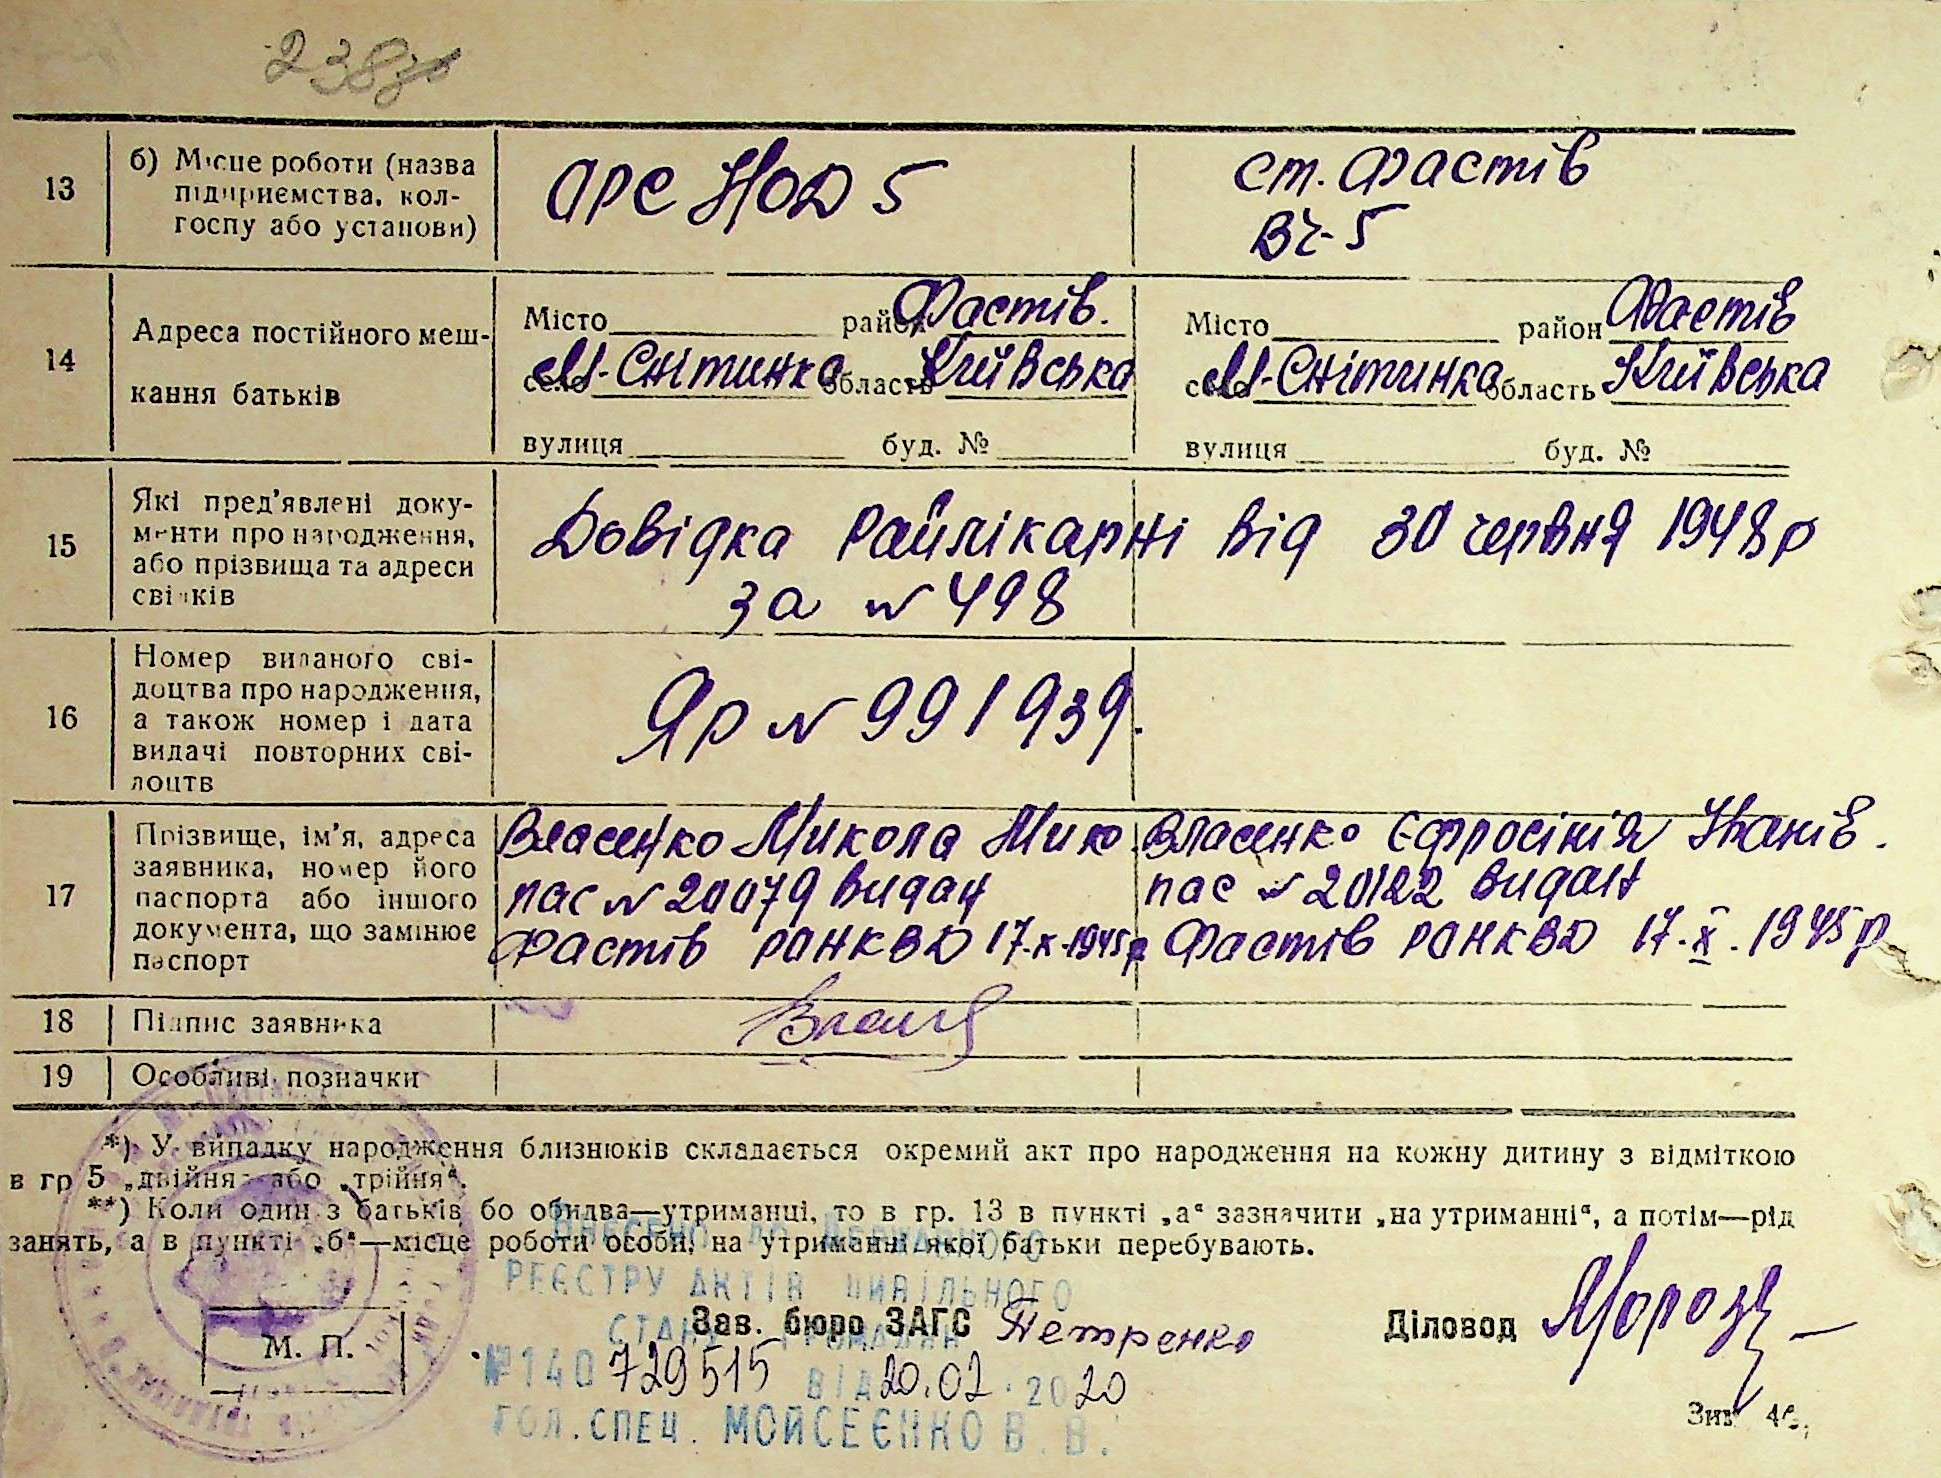 238
13
б) Місце роботи (назва
підприємства, кол-
госпу або установи)
ОРС НОД 5
ст. Фастів
ВЧ-5
14
Адреса постійного меш-
кання батьків
Місто район Фастів.
село М-Снітинка область Київська
вулиця буд. №
Місто район Фастів
село М-Снітинка область Київська
вулиця буд. №
15
Які пред’явлені доку-
менти про народження,
або прізвища та адреси
свідків
Довідка Райлікарні від 30 червня 1948 р
за № 498
16
Номер виданого сві-
доцтва про народження,
а також номер і дата
видачі повторних сві-
доцтв
Яр № 991939.
17
Прізвище, ім’я, адреса
заявника, номер його
паспорта або іншого
документа, що замінює
паспорт
Власенко Микола Мико
пас № 20079 видан
Фастів РОНКВД 17-х-1945р
Власенко Єфросінія Іванів.
пас № 20122 видан
Фастів РОНКВД 17-X.1945р
18
Підпис заявника
19
Особливі позначки
*) У випадку народження близнюків складається окремий акт про народження на кожну дитину з відміткою
в гр 5 „двійня“ або „трійня“.
**) Коли один з батьків бо обидва—утриманці, то в гр. 13 в пункті „а“ зазначити „на утриманні“, а потім—рід
занять, а в пункті „б“—місце роботи особи, на утриманні якої батьки перебувають.
ВНЕСЕНО ДО ДЕРЖАВНОГО
РЕЄСТРУ АКТІВ ЦИВІЛЬНОГО
СТАНУ ГРОМАДЯН
№140 729515 ВІД 20.02.2020
ГОЛ.СПЕЦ. МОЙСЕЄНКО В.В.
М. П.
Зав. бюро ЗАГС Петренко
Діловод Мороз